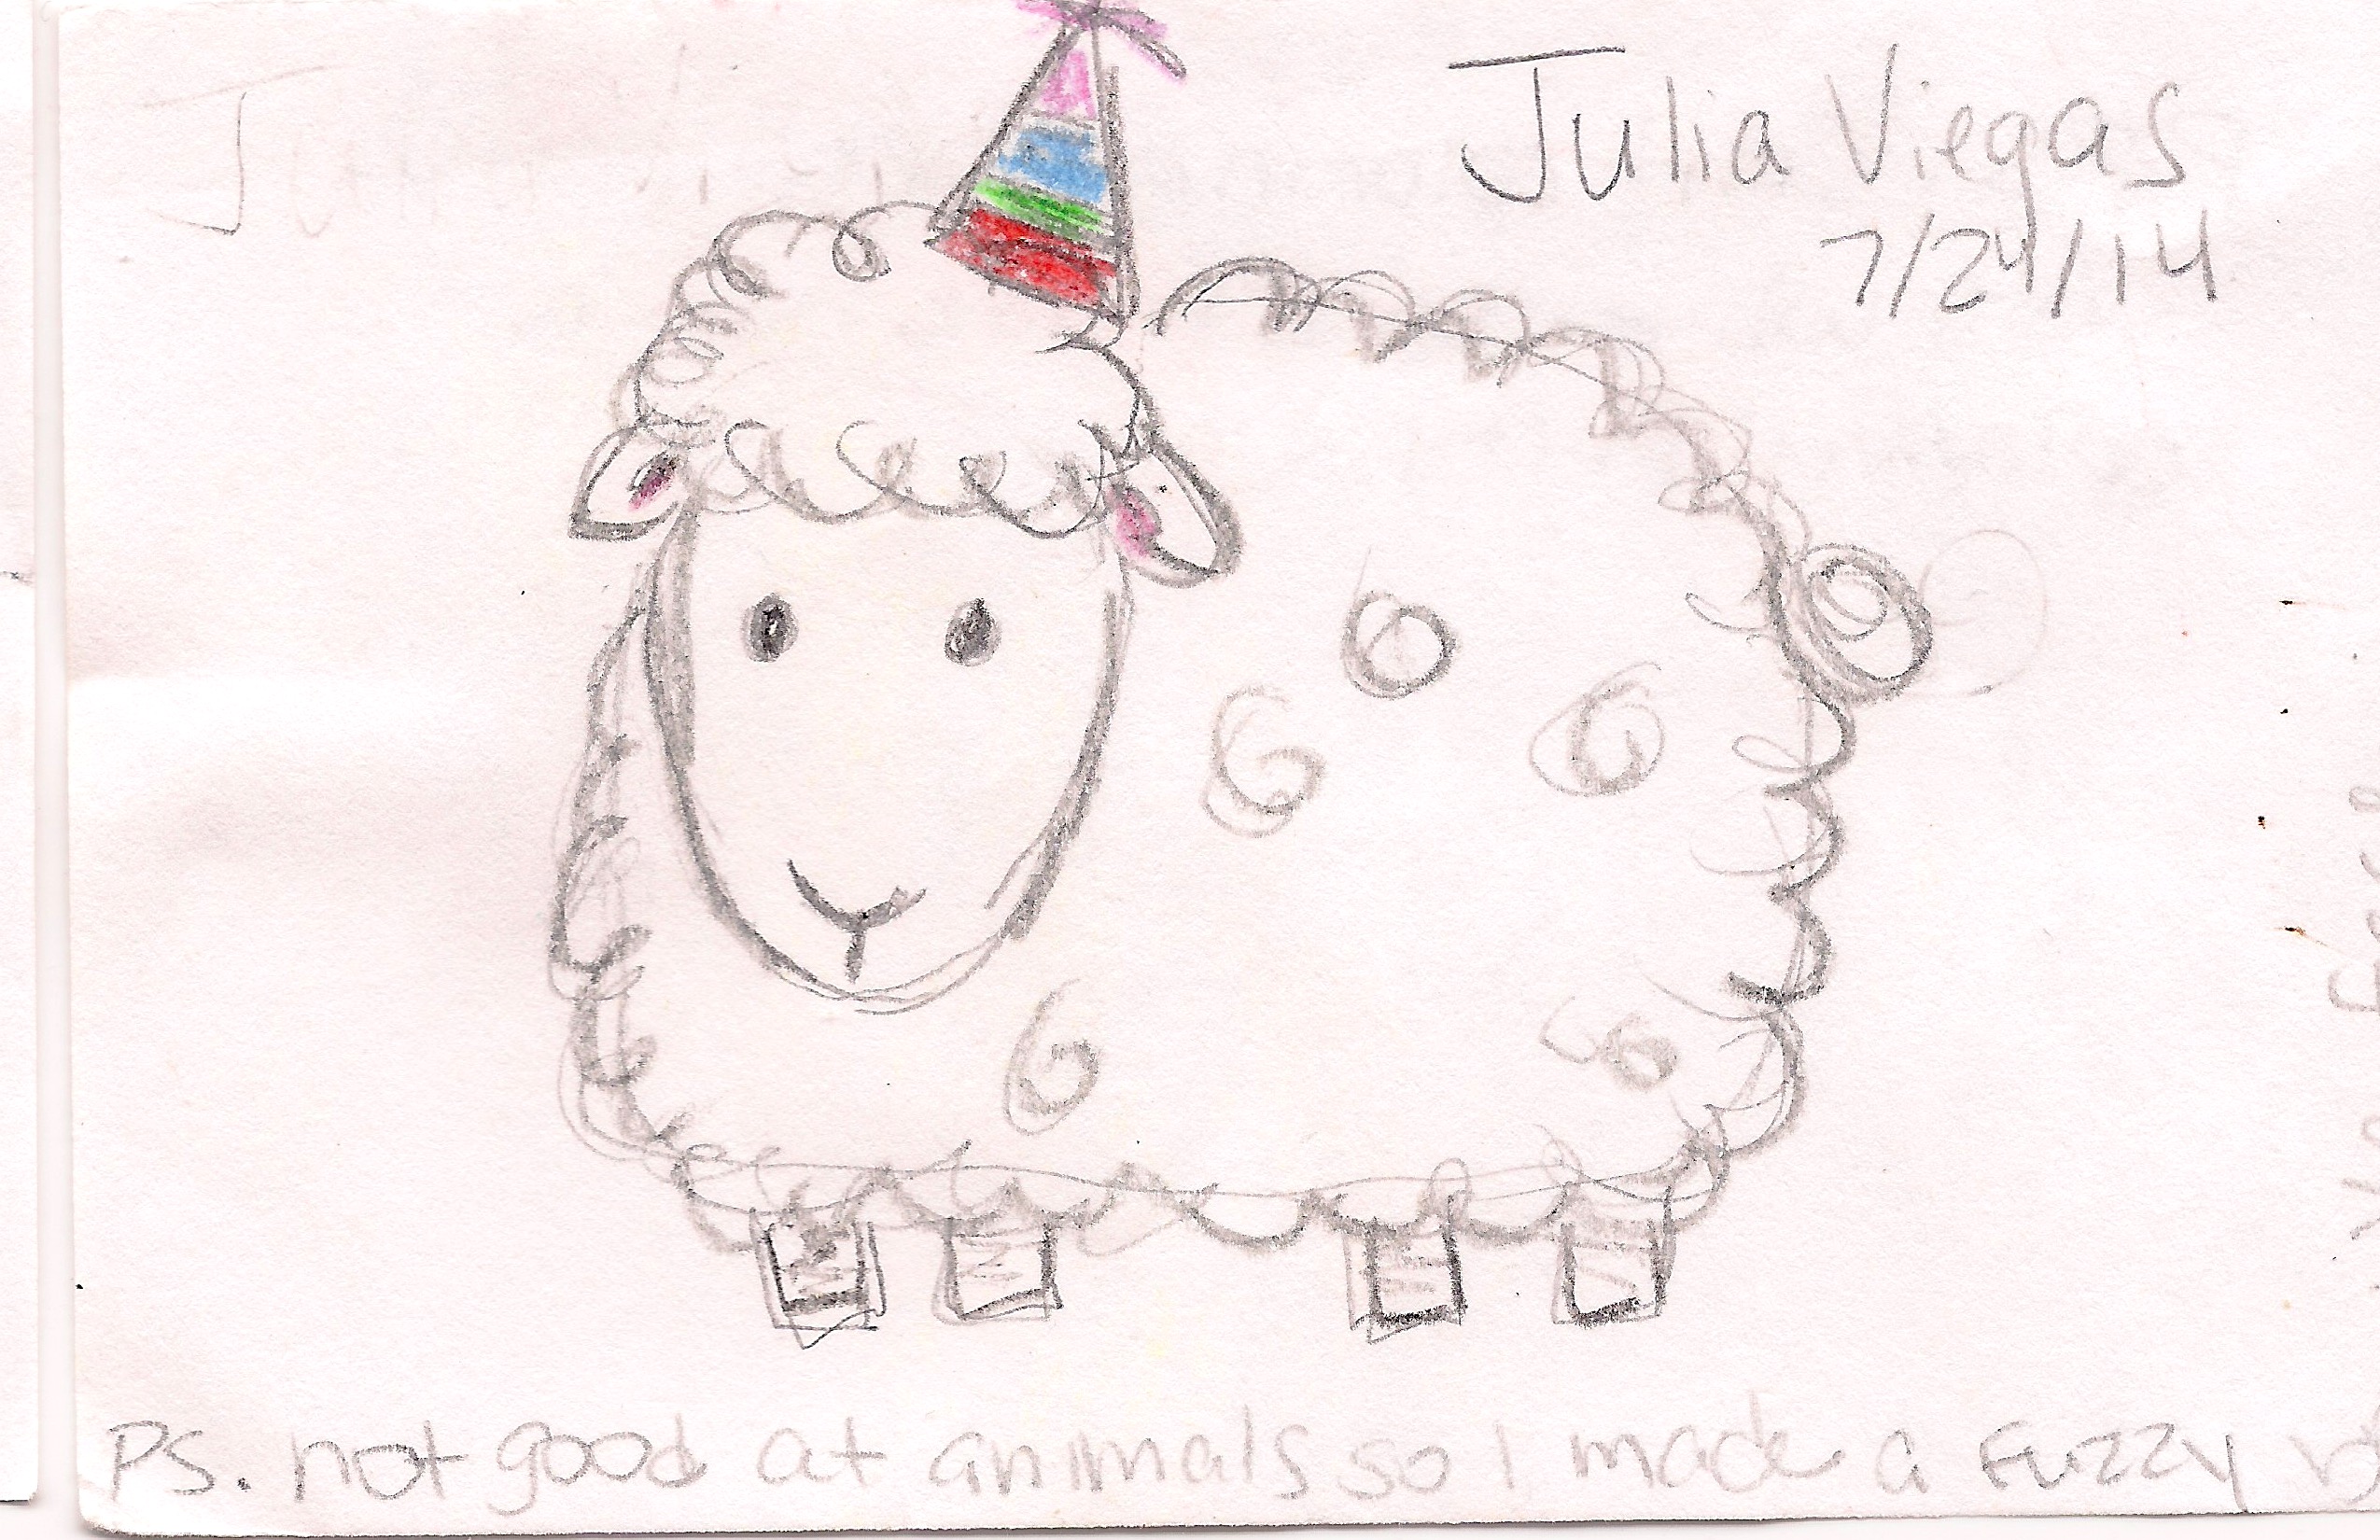 Julia Viegas
7/24/14
PS. not good at animals so I made a Fuzzy